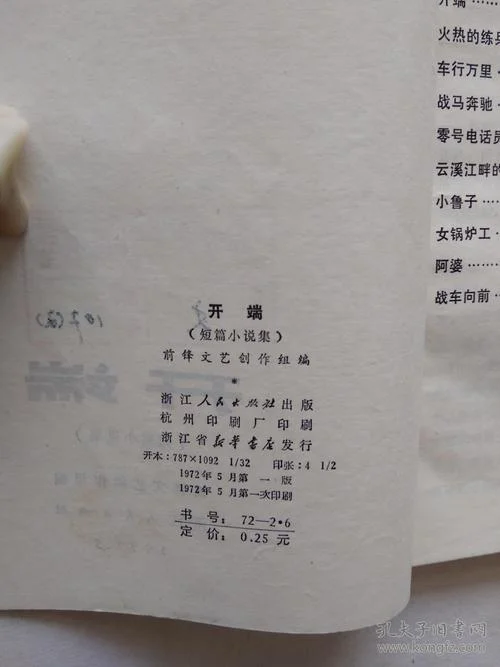 开端
(短篇小说集)
前锋文艺创作组编
*
浙江人民出版社出版
杭州印刷厂印刷
浙江省新华书店发行
开本:787×1092 1/32 印张:4 1/2
1972年5月第一版
1972年5月第一次印刷
书号:72—2·6
定价:0.25元
开端……
火热的练兵
车行万里
战马奔驰…
零号电话员
云溪江畔的
小鲁子……
女锅炉工…
阿婆………
战车向前…
孔夫子旧书网
www.kongfz.com